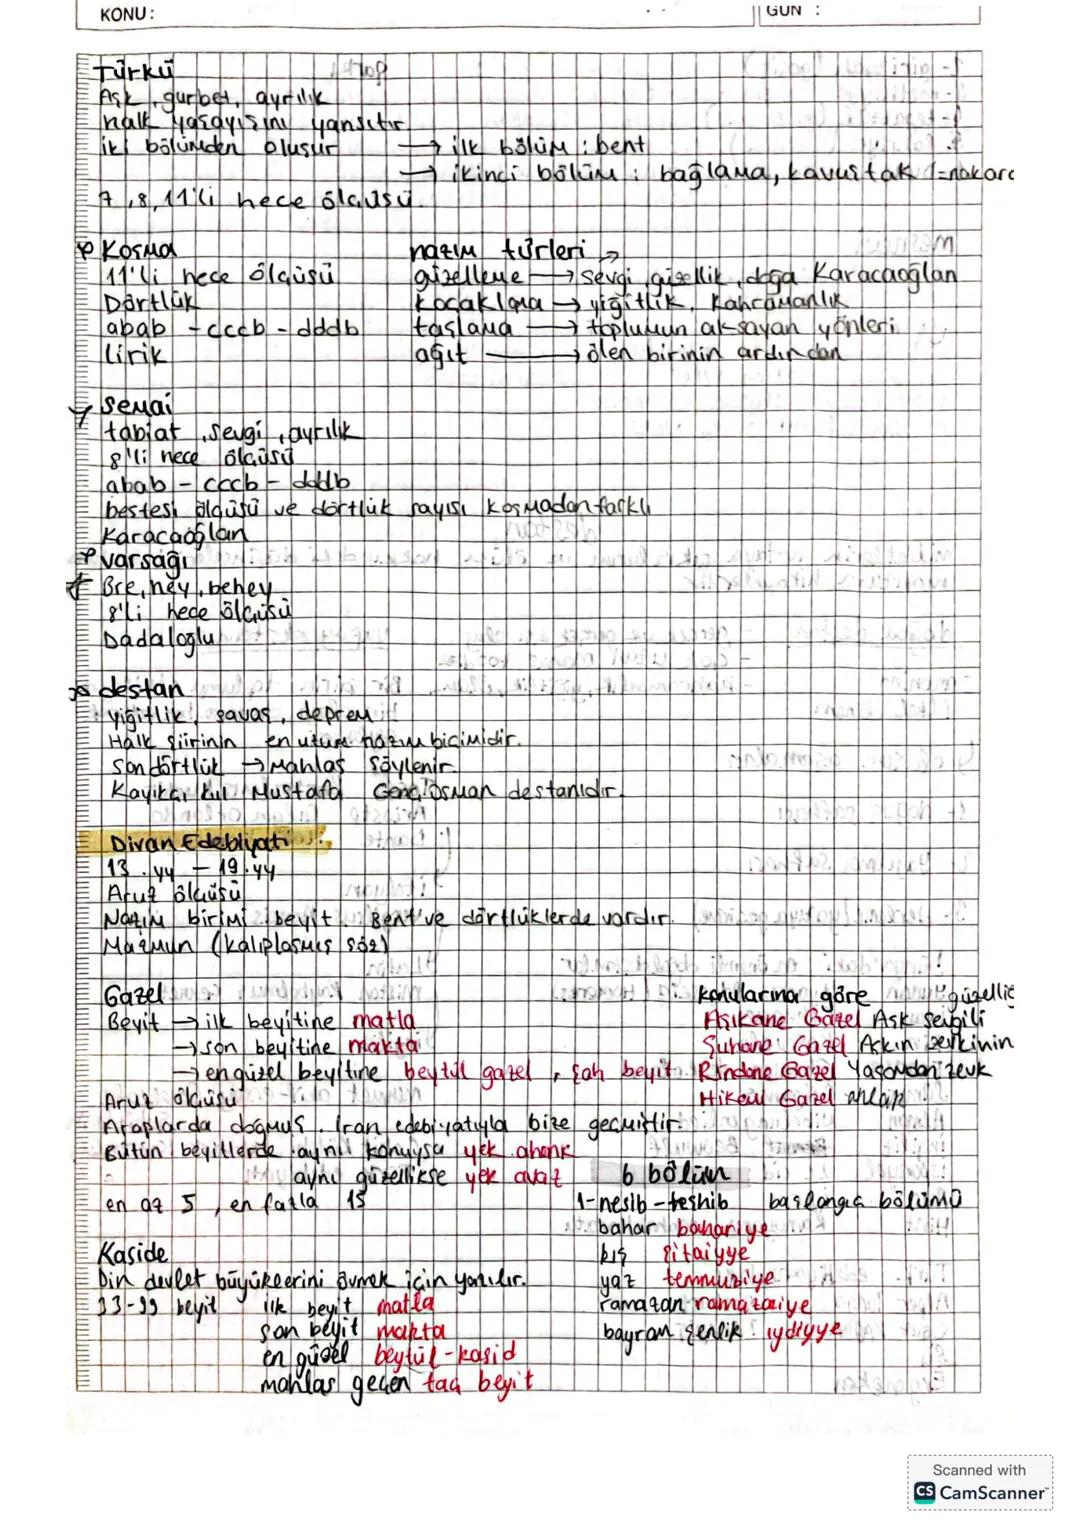 KONU:
GÜN :
Türkü
Aşk, gurbet, ayrılık
halk yaşayışını yansıtır.
iki bölümden oluşur → ilk bölüm : bent
→ ikinci bölüm : bağlama, kavuştak (=nakara
7,8,11'li hece ölçüsü.
Koşma
11'li hece ölçüsü
Dörtlük
abab - cccb - dddb
lirik
nazım türleri
güzelleme → sevgi, güzellik, doğa Karacaoğlan
koçaklama → yiğitlik, Kahramanlık
taşlama → toplumun aksayan yönleri
ağıt → ölen birinin ardından
Semai
tabiat, sevgi, ayrılık
8'li hece ölçüsü
abab - cccb - dddb
bestesi ölçüsü ve dörtlük sayısı koşmadan farklı
Karacaoğlan
varsağı
Bre, hey, behey
8'li hece ölçüsü
Dadaloğlu
destan
yiğitlik, savaş, deprem
Halk şiirinin en uzun nazım biçimidir.
Son dörtlük → Mahlas söylenir.
Kayıkçı Kul Mustafa Genç Osman destanıdır.
Divan Edebiyatı
13.yy - 19.yy
Aruz ölçüsü
Nazım birimi beyit. Bent ve dörtlüklerde vardır.
Mazmun (kalıplaşmış söz)
Gazel
Beyit → ilk beyitine matla
→ son beyitine makta
→ en güzel beyitine beytül gazel, şah beyit
Aruz ölçüsü
Araplarda doğmuş. İran edebiyatıyla bize geçmiştir.
Bütün beyitlerde aynı konuysa yek ahenk
aynı güzellikse yek avaz
en az 5, en fazla 15
konularına göre "güzelliğ
Aşıkane Gazel Aşk sevgili
Şuhane Gazel Aşkın zevkinin
Rindane Gazel Yaşamdan zevk
Hikemi Gazel ahlak
Kaside
Din devlet büyüklerini övmek için yazılır.
33-99 beyit ilk beyit matla
son beyit makta
en güzel beytül-kasid
mahlas geçen taç beyit
6 bölüm
1-nesib-teşbib başlangıç bölümü
bahar bahariye
kış şitaiyye
yaz temmuziye
ramazan ramazaiye
bayram şenlik ıydiyye
Scanned with
CS CamScanner